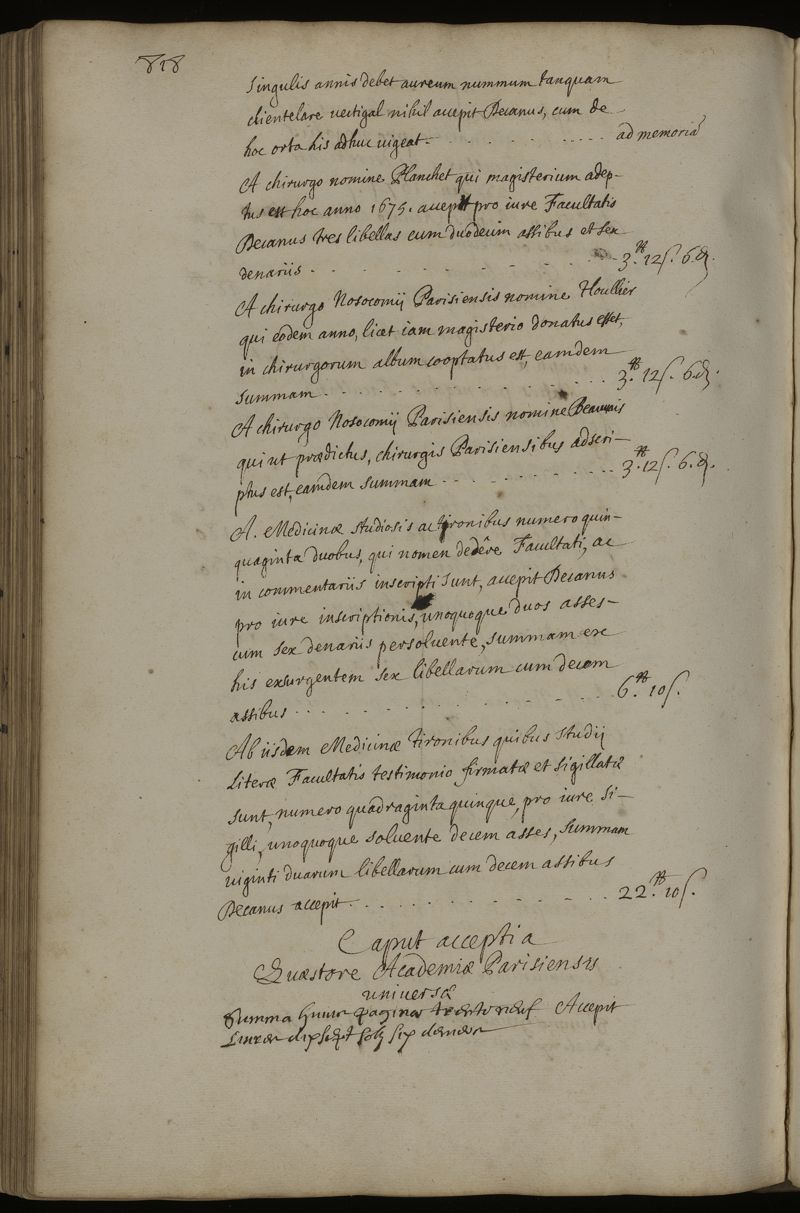 818
singulis annis debet aureum nummum tanquam
clientelare vectigal nihil accepit Decanus, cum de
hoc orta lis adhuc uigeat. . . . . . . . . ad memoriã
A chirurgo nomine Planchet qui magisterium adep-
tus est hoc anno 1675. accepit pro iure Facultatis
Decanus tres libellas cum duodecim assibus et sex
denariis . . . . . . . . . 3.tt 12 s. 6 d.
A chirurgo Nosocomij Parisiensis nomine Houllier
qui eodem anno, licet iam magisterio donatus esset,
in chirurgorum album cooptatus est, eamdem
summam . . . . . . . . . 3.tt 12 s. 6 d.
A chirurgo Nosocomij Parisiensis nomine Beauvais
qui ut prædictus, chirurgis Parisiensibus adscri-
ptus est, eamdem summam . . . . . . . 3.tt 12 s. 6. d.
A. Medicinæ studiosis ac tironibus numero quin-
quaginta duobus, qui nomen dedêre Facultati, ac
in commentariis inscripti sunt, accepit Decanus
pro iure inscriptionis, unoquoque duos asses
cum sex denariis persoluente, summam ex
his exsurgentem sex libellarum cum decem
assibus . . . . . . . . . 6.tt 10 s.
Ab iisdem Medicinæ tironibus quibus studij
literæ Facultatis testimonio firmatæ et sigillatæ
sunt, numero quadraginta quinque, pro iure si-
gilli, unoquoque soluente decem asses, summam
uiginti duarum libellarum cum decem assibus
Decanus accepit . . . . . . . . . 22.tt 10 s.
Caput accepti a
Quæstore Academiæ Parisiensis
universæ
Summa huius paginæ trente neuf Accepit
Livres dix sept solz six deniers